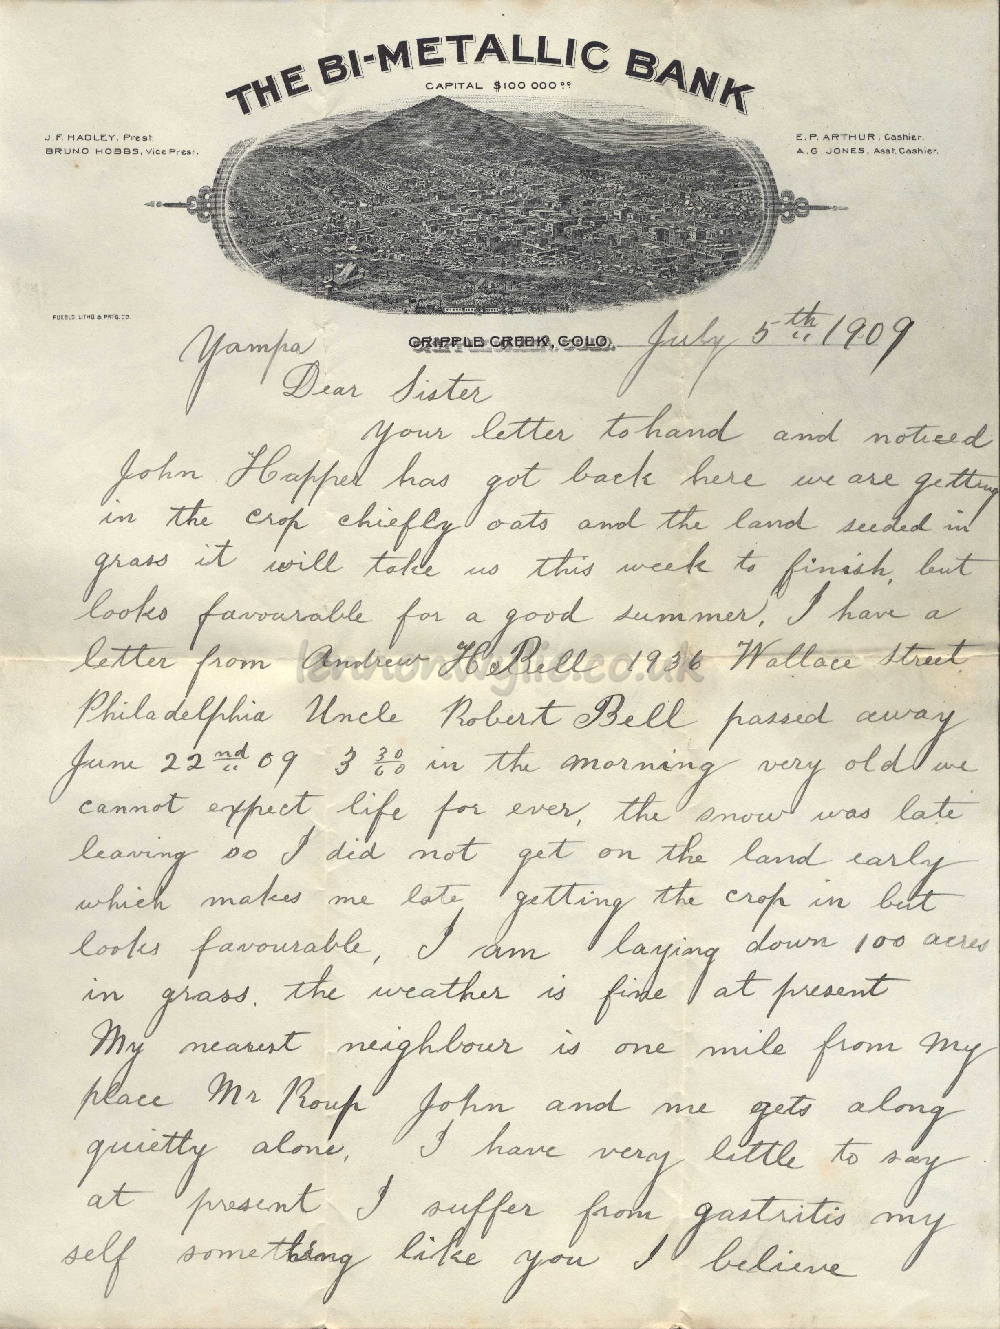 THE BI-METALLIC BANK
CAPITAL $100 000ºº
J.F. HADLEY, Prest
BRUNO HOBBS, Vice Prest.
E.P. ARTHUR, Cashier.
A.G. JONES, Asst. Cashier.
PUEBLO LITHO & PRTG. CO.
Yampa CRIPPLE CREEK, COLO. July 5th 1909
Dear Sister
Your letter to hand and noticed
John Happer has got back here we are getting
in the crop chiefly oats and the land seeded in
grass it will take us this week to finish, but
looks favourable for a good summer, I have a
letter from Andrew Bell 1936 Wallace Street
lennonwylie.co.uk
Philadelphia Uncle Robert Bell passed away
June 22nd 09 3 30/60 in the morning very old we
cannot expect life for ever, the snow was late
leaving so I did not get on the land early
which makes me late getting the crop in but
looks favourable, I am laying down 100 acres
in grass. the weather is fine at present
My nearest neighbour is one mile from my
place Mr Roup John and me gets along
quietly alone, I have very little to say
at present I suffer from gastritis my
self something like you I believe